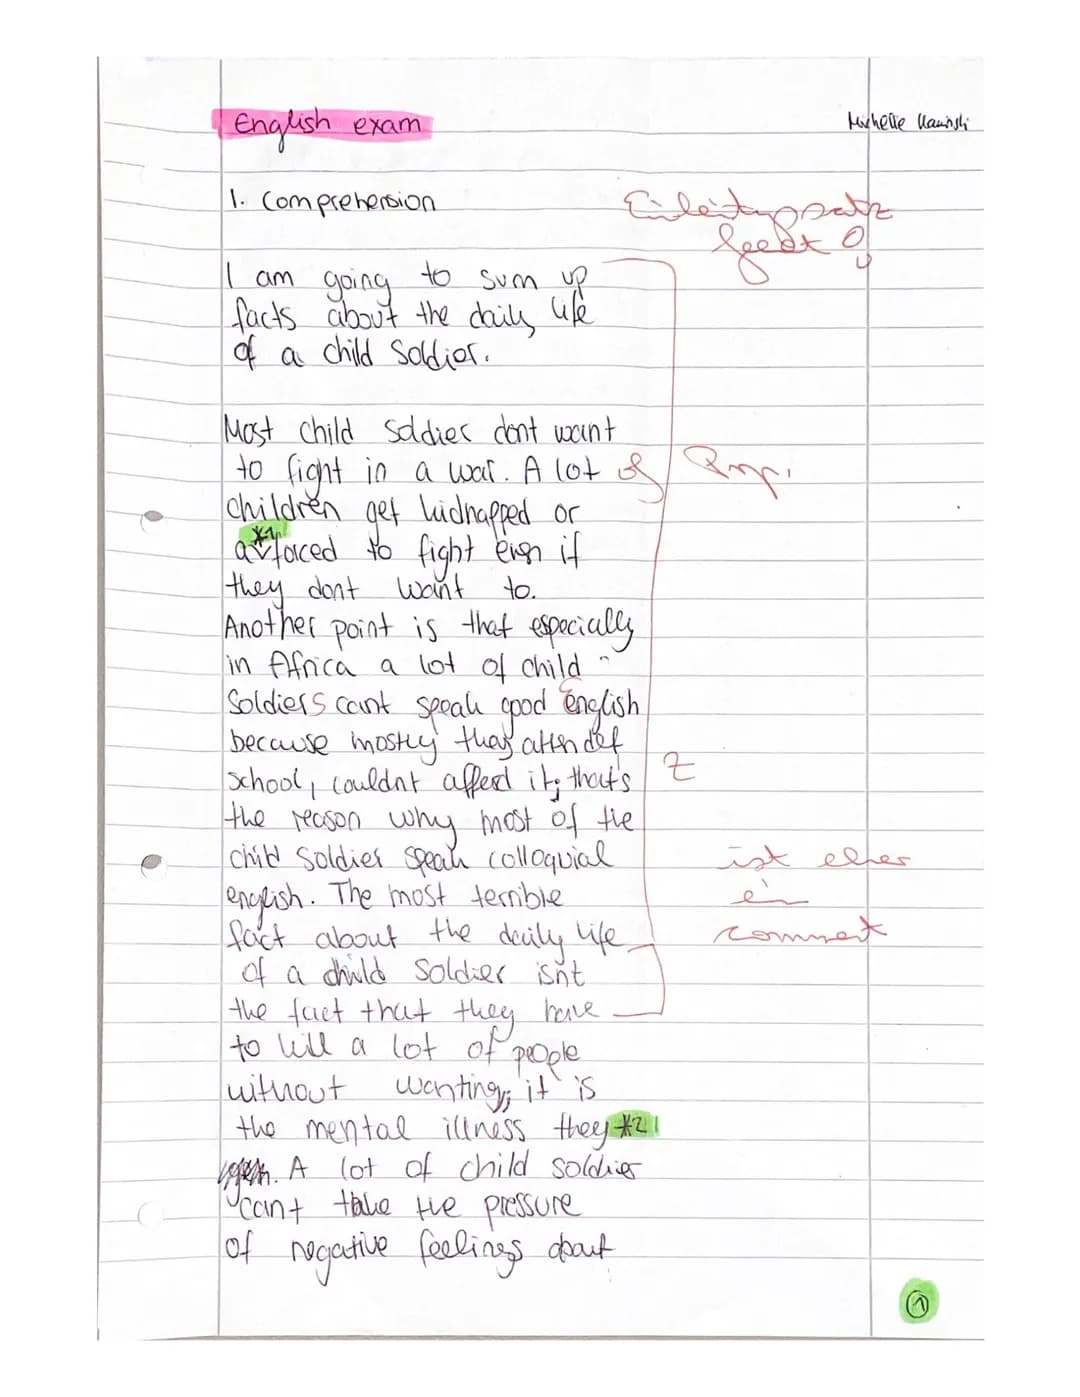 English exam
Michelle
1. Comprehension
Einleitungssatz
fehlt
I am going to sum up
facts about the daily life
of a child Soldier.
Most child Soldier dont want
to fight in a war. A lot of
children get kidnapped or
*1
forced to fight even if
they dont want to.
Another point is that especially
in Africa a lot of child
Soldiers cant speak good English
because mostly they
school, couldnt afford it; that's
the reason why most of the
child Soldier speak colloquial
english. The most terrible
fact about the daily life
of a child Soldier isnt
the fact that they have
to kill a lot of people
without wanting, it is
the mental illness they *2
A lot of child soldier
cant take the pressure
of negative feelings about
Präp.
Z
ist eher
ein
comment
1